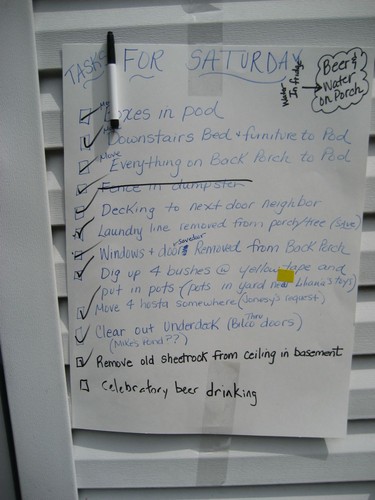 TASKS FOR SATURDAY
Water
In fridge
Beer &
Water
on Porch
Boxes in pod
Downstairs Bed + furniture to Pod
Move
Everything on Back Porch to Pod
Fence in dumpster
Decking to next door neighbor
Laundry line removed from porch/tree (save)
save door
Windows + doors Removed from Back Porch
Dig up 4 bushes @ yellow tape and
put in pots (pots in yard near Libania's toys)
Move 4 hosta somewhere (Jonesy's request)
Clear out Underdeck (Thru Bilco doors)
(Mike's band??)
Remove old sheetrock from ceiling in basement
Celebratory beer drinking